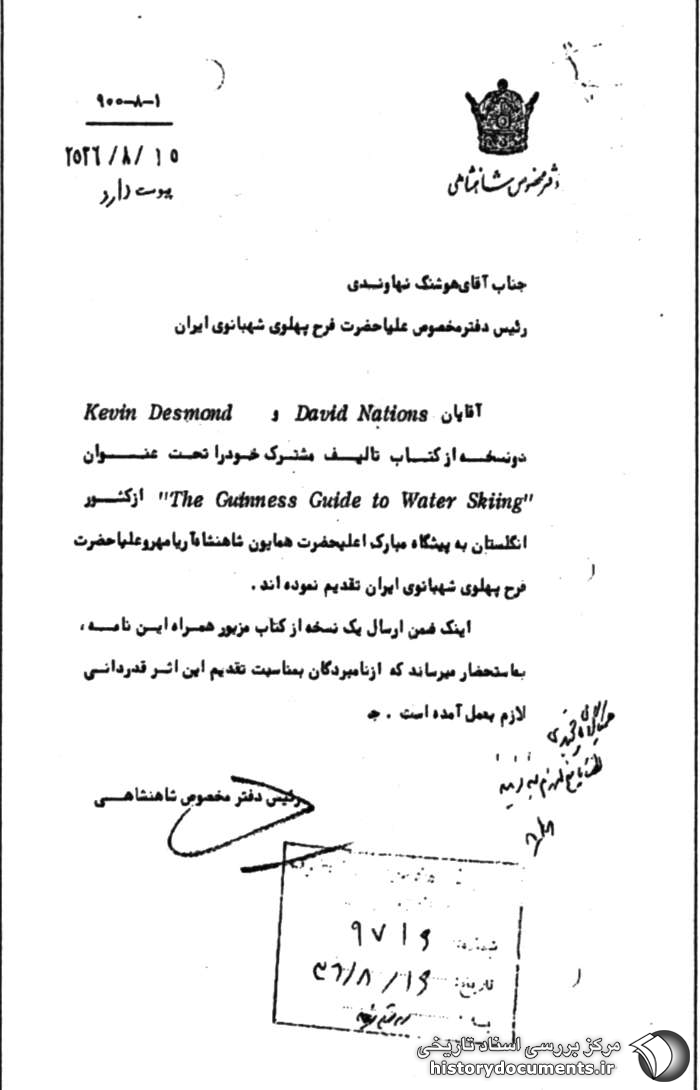 دفتر مخصوص شاهنشاهی
۹۰۰-۸-۱
۲۵۳۶/۸/۱۵
پیوست دارد
جناب آقای هوشنگ نهاوندی
رئیس دفتر مخصوص علیاحضرت فرح پهلوی شهبانوی ایران
آقایان David Nations و Kevin Desmond
دو نسخه از کتاب تالیف مشترک خود را تحت عنوان
"The Guinness Guide to Water Skiing" از کشور
انگلستان به پیشگاه مبارک اعلیحضرت همایون شاهنشاه آریامهر و علیاحضرت
فرح پهلوی شهبانوی ایران تقدیم نموده اند .
اینک ضمن ارسال یک نسخه از کتاب مزبور همراه این نامه ،
باستحضار میرساند که از نامبردگان بمناسبت تقدیم این اثر قدردانی
لازم بعمل آمده است . ج
رئیس دفتر مخصوص شاهنشاهی
شماره:
تاریخ:
مرکز بررسی اسناد تاریخی
historydocuments.ir